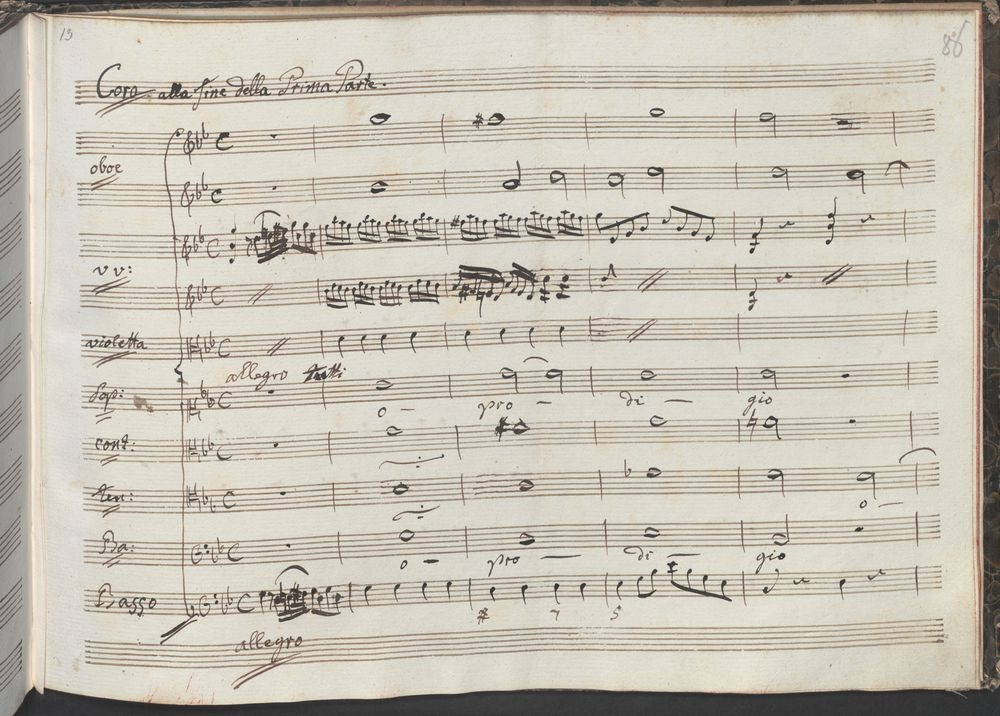 13
88
Coro alla fine della Prima Parte.
oboe
vv:
violetta
allegro tutti
Sop:
o — pro — di — gio
cont:
ten:
o —
Ba:
o — pro — di — gio
Basso
# 7 5
allegro